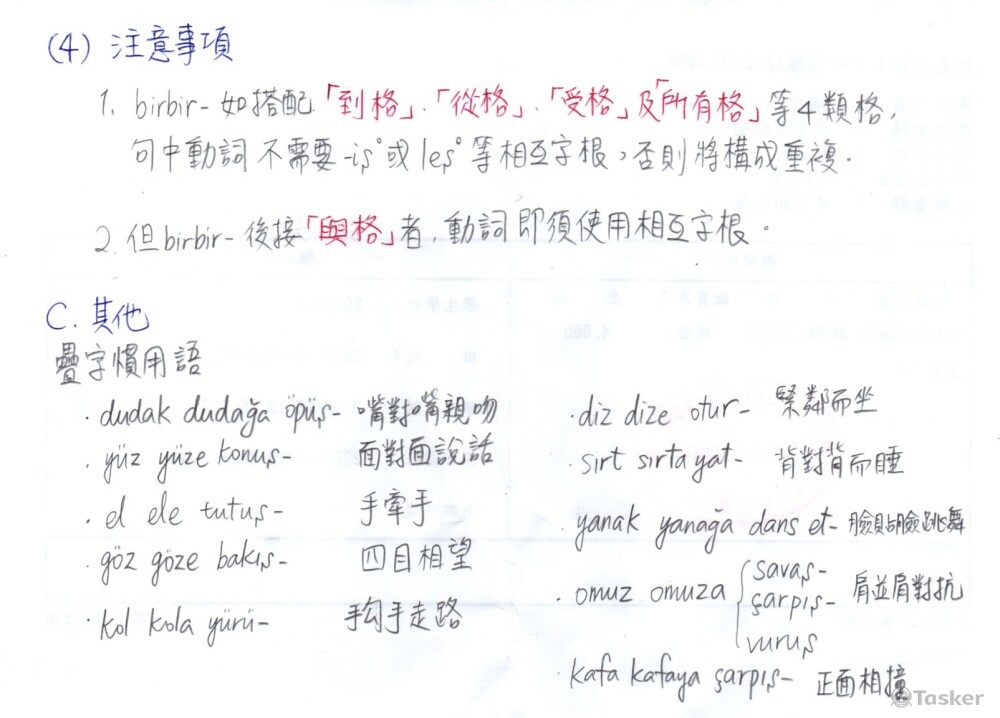 (4) 注意事項
1. birbir- 如搭配「到格」、「從格」、「受格」及「所有格」等4類格,
句中動詞不需要 -iş°或 leş°等相互字根，否則將構成重複.
2. 但birbir- 後接「與格」者, 動詞即須使用相互字根。
C. 其他
疊字慣用語
· dudak dudağa öpüş- 嘴對嘴親吻
· yüz yüze konuş- 面對面說話
· el ele tutuş- 手牽手
· göz göze bakış- 四目相望
· kol kola yürü- 手勾手走路
· diz dize otur- 緊鄰而坐
· sırt sırta yat- 背對背而睡
· yanak yanağa dans et- 臉貼臉跳舞
· omuz omuza { savaş-
çarpış- 肩並肩對抗
vuruş
· kafa kafaya çarpış- 正面相撞
Tasker